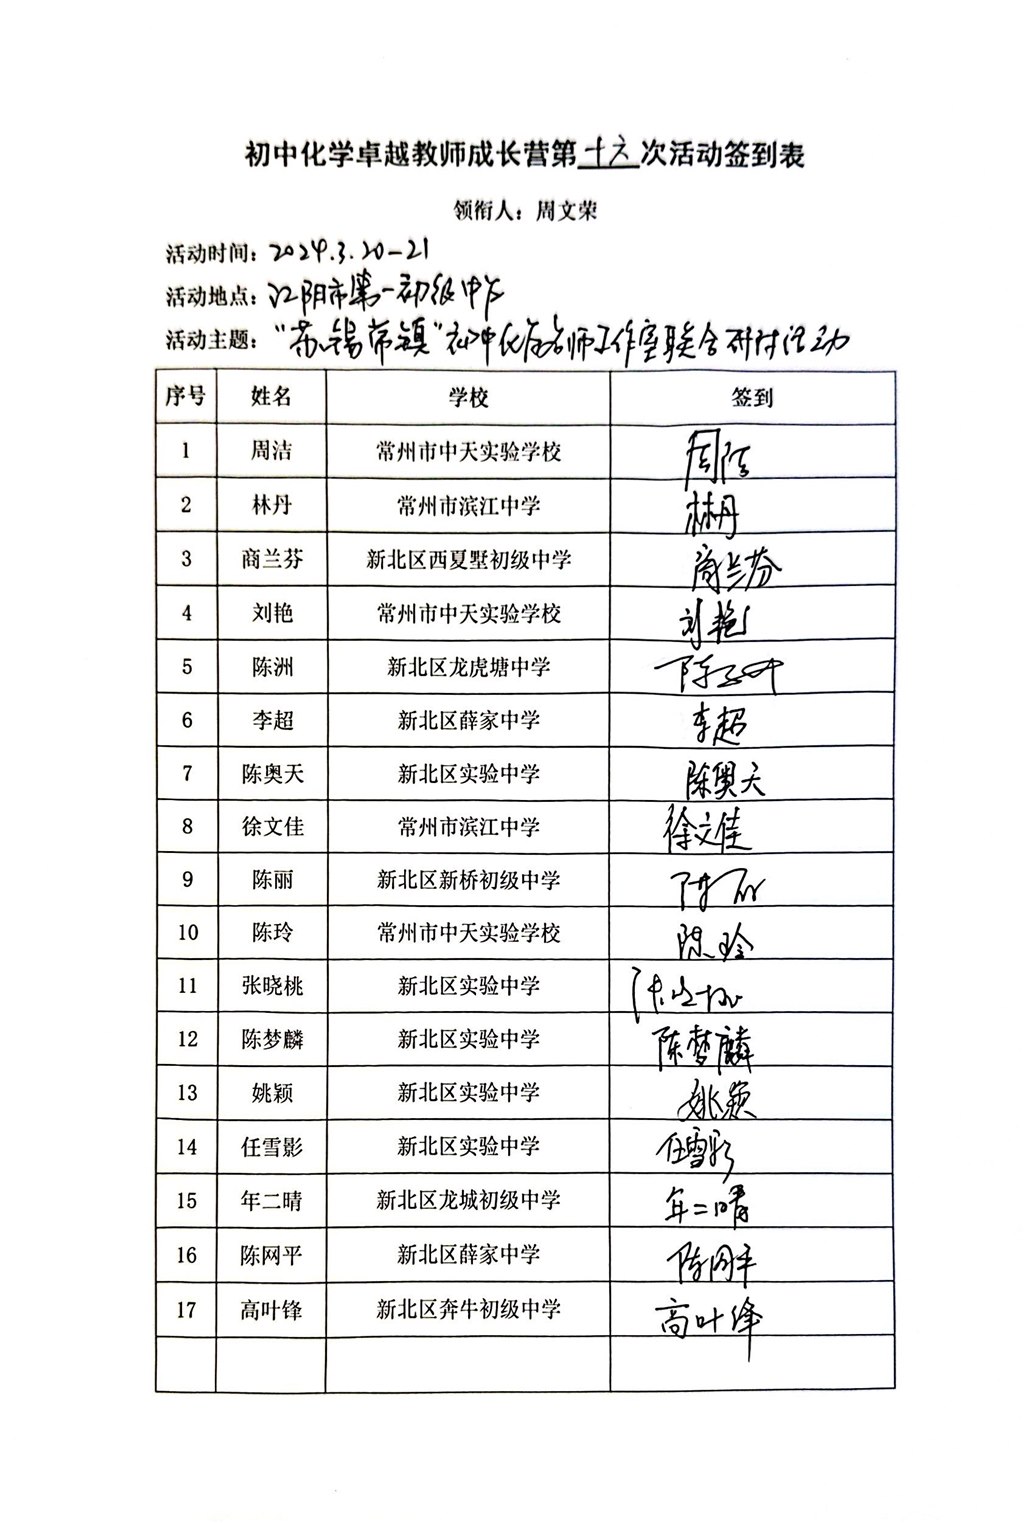 初中化学卓越教师成长营第十六次活动签到表
领衔人：周文荣
活动时间：2024.3.20-21
活动地点：江阴市第一初级中学
活动主题：“苏锡常镇”初中化学名师工作室联合研讨活动
序号 姓名 学校 签到
1 周洁 常州市中天实验学校 周洁
2 林丹 常州市滨江中学 林丹
3 商兰芬 新北区西夏墅初级中学 商兰芬
4 刘艳 常州市中天实验学校 刘艳
5 陈洲 新北区龙虎塘中学 陈洲
6 李超 新北区薛家中学 李超
7 陈奥天 新北区实验中学 陈奥天
8 徐文佳 常州市滨江中学 徐文佳
9 陈丽 新北区新桥初级中学 陈丽
10 陈玲 常州市中天实验学校 陈玲
11 张晓桃 新北区实验中学 张晓桃
12 陈梦麟 新北区实验中学 陈梦麟
13 姚颖 新北区实验中学 姚颖
14 任雪影 新北区实验中学 任雪影
15 年二晴 新北区龙城初级中学 年二晴
16 陈网平 新北区薛家中学 陈网平
17 高叶锋 新北区奔牛初级中学 高叶锋